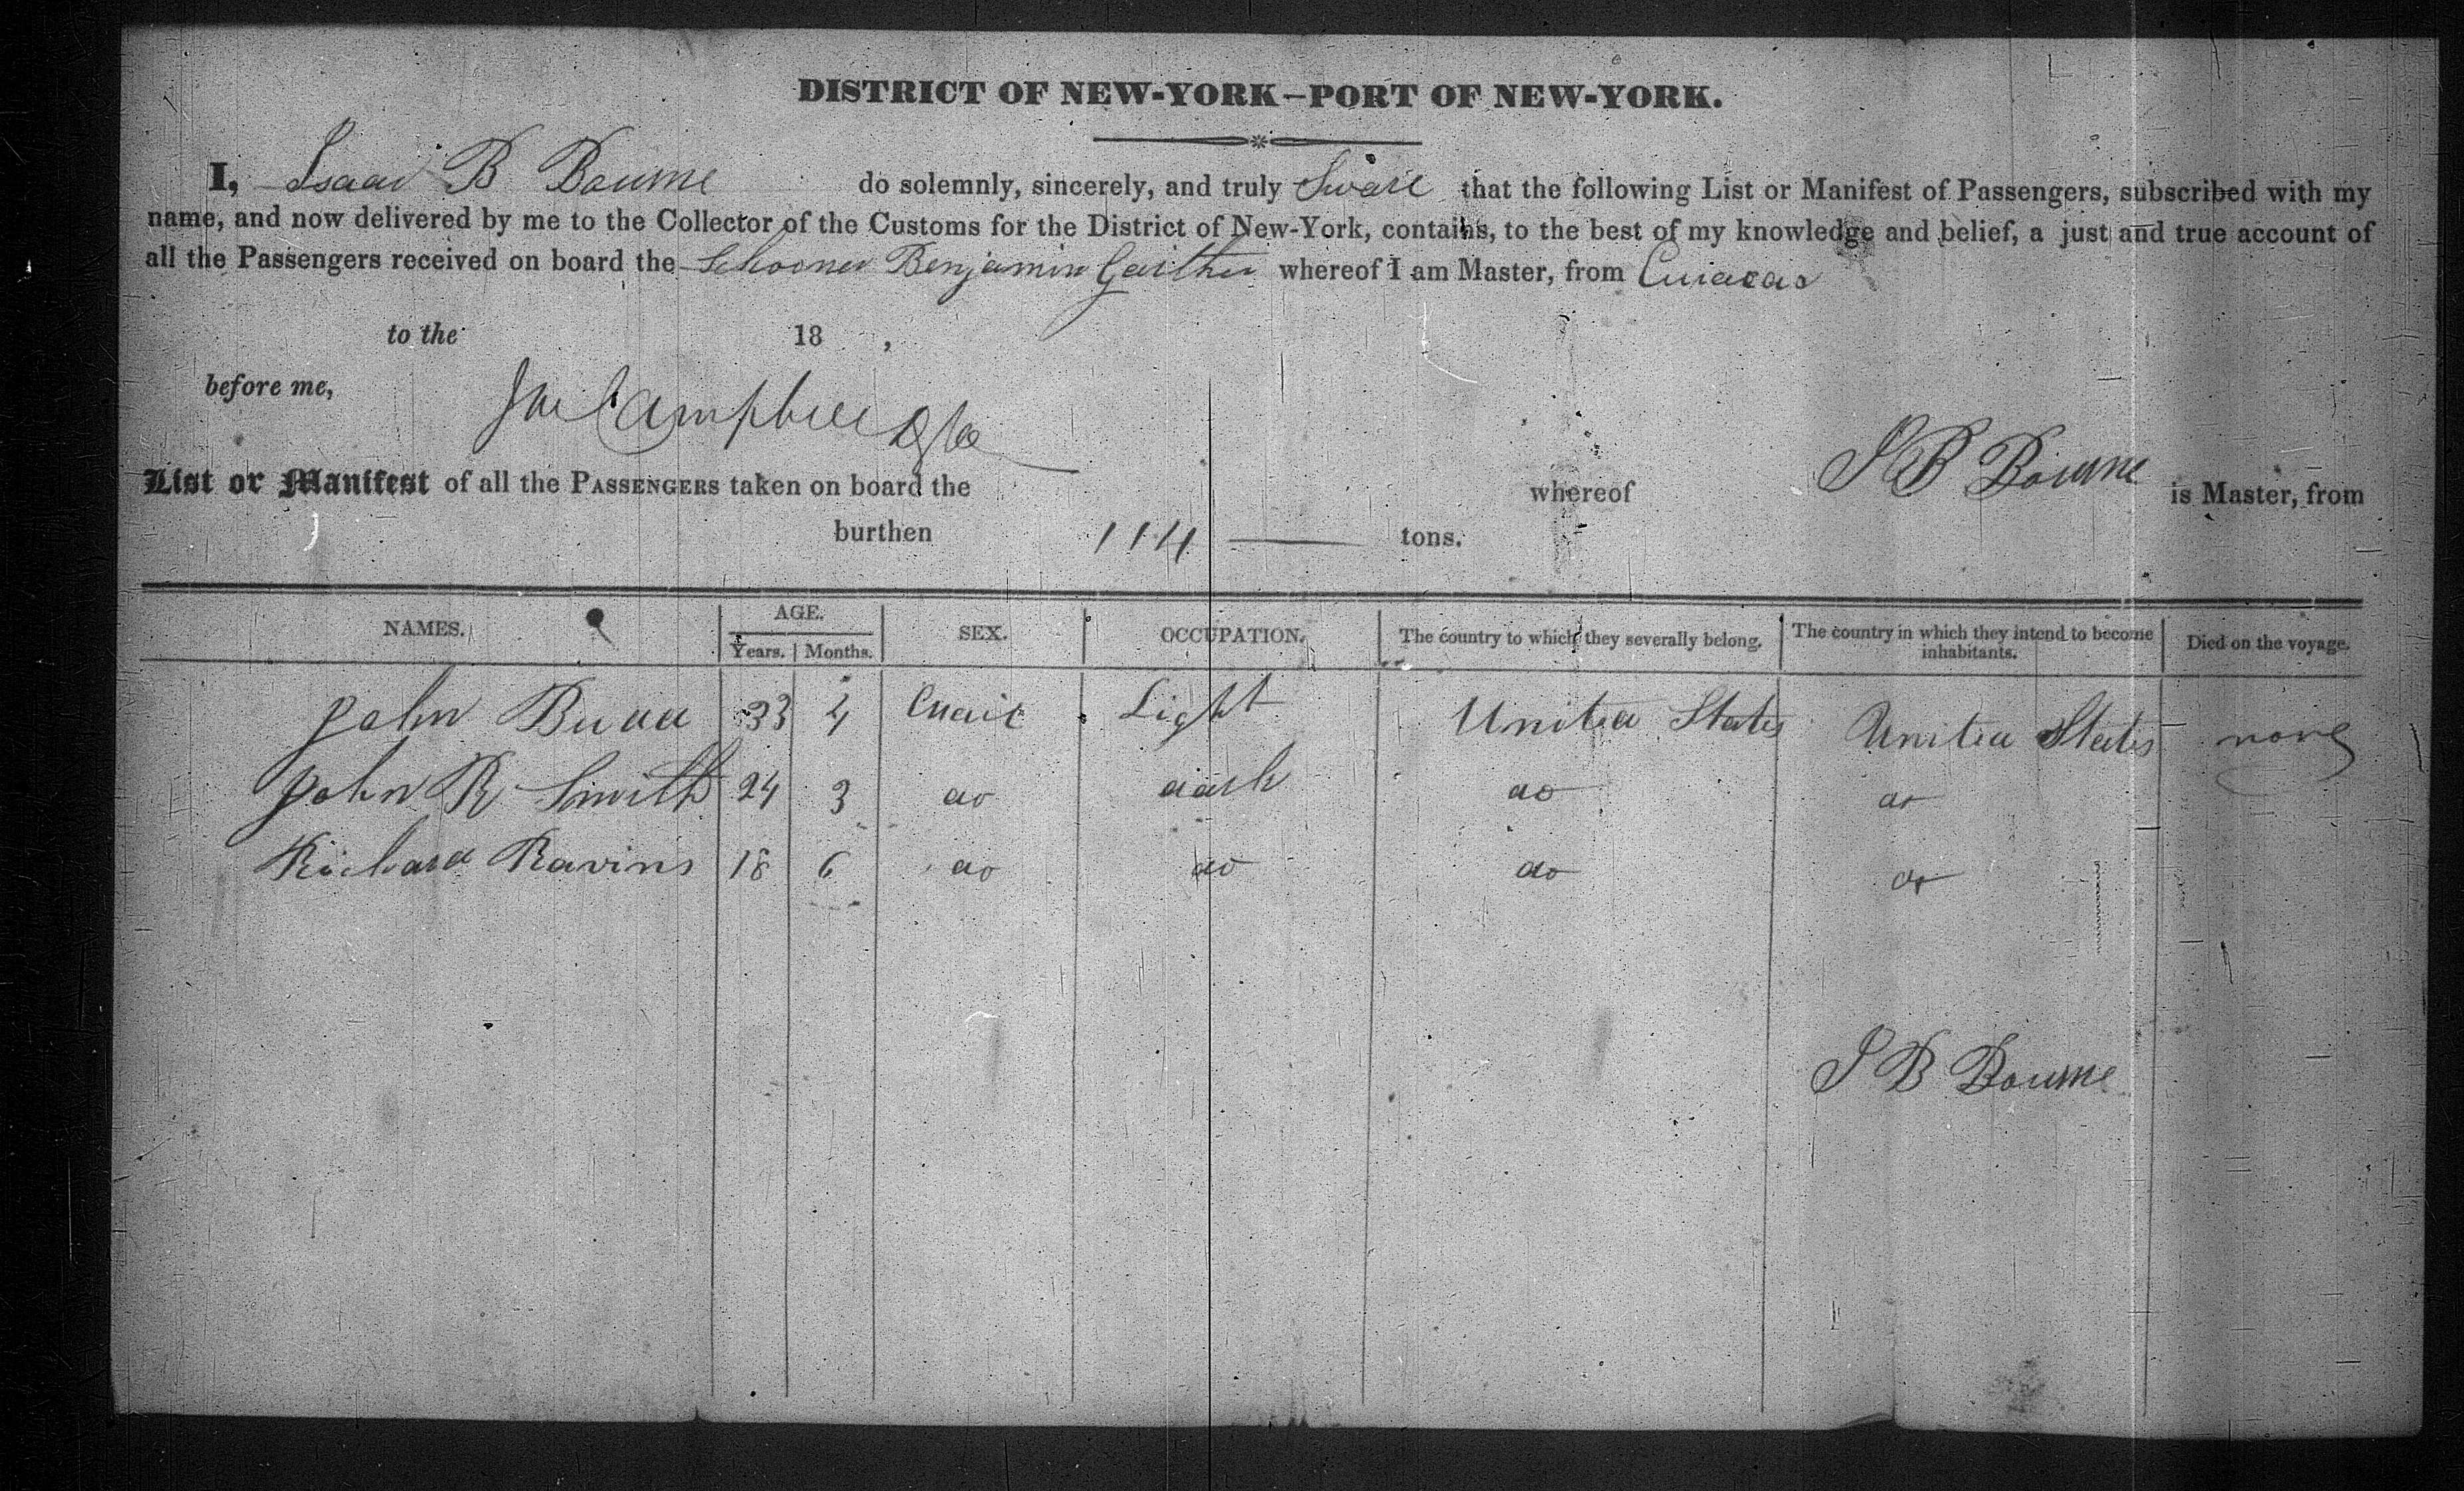 DISTRICT OF NEW-YORK–PORT OF NEW-YORK.
I, Isaac B Bourne do solemnly, sincerely, and truly Sware that the following List or Manifest of Passengers, subscribed with my
name, and now delivered by me to the Collector of the Customs for the District of New-York, contains, to the best of my knowledge and belief, a just and true account of
all the Passengers received on board the Schooner Benjamin Gaither whereof I am Master, from Curacao
to the 18 ,
before me, Campbell
S B Bourne
List or Manifest of all the PASSENGERS taken on board the whereof is Master, from
burthen 114 tons.
NAMES. AGE. SEX. OCCUPATION. The country to which they severally belong. The country in which they intend to become inhabitants. Died on the voyage.
Years. Months.
John Budd 33 4 Light United States United States none
John R Smith 24 3 do dark do do
Richard Ravins 18 6 do do do do
S B Bourne